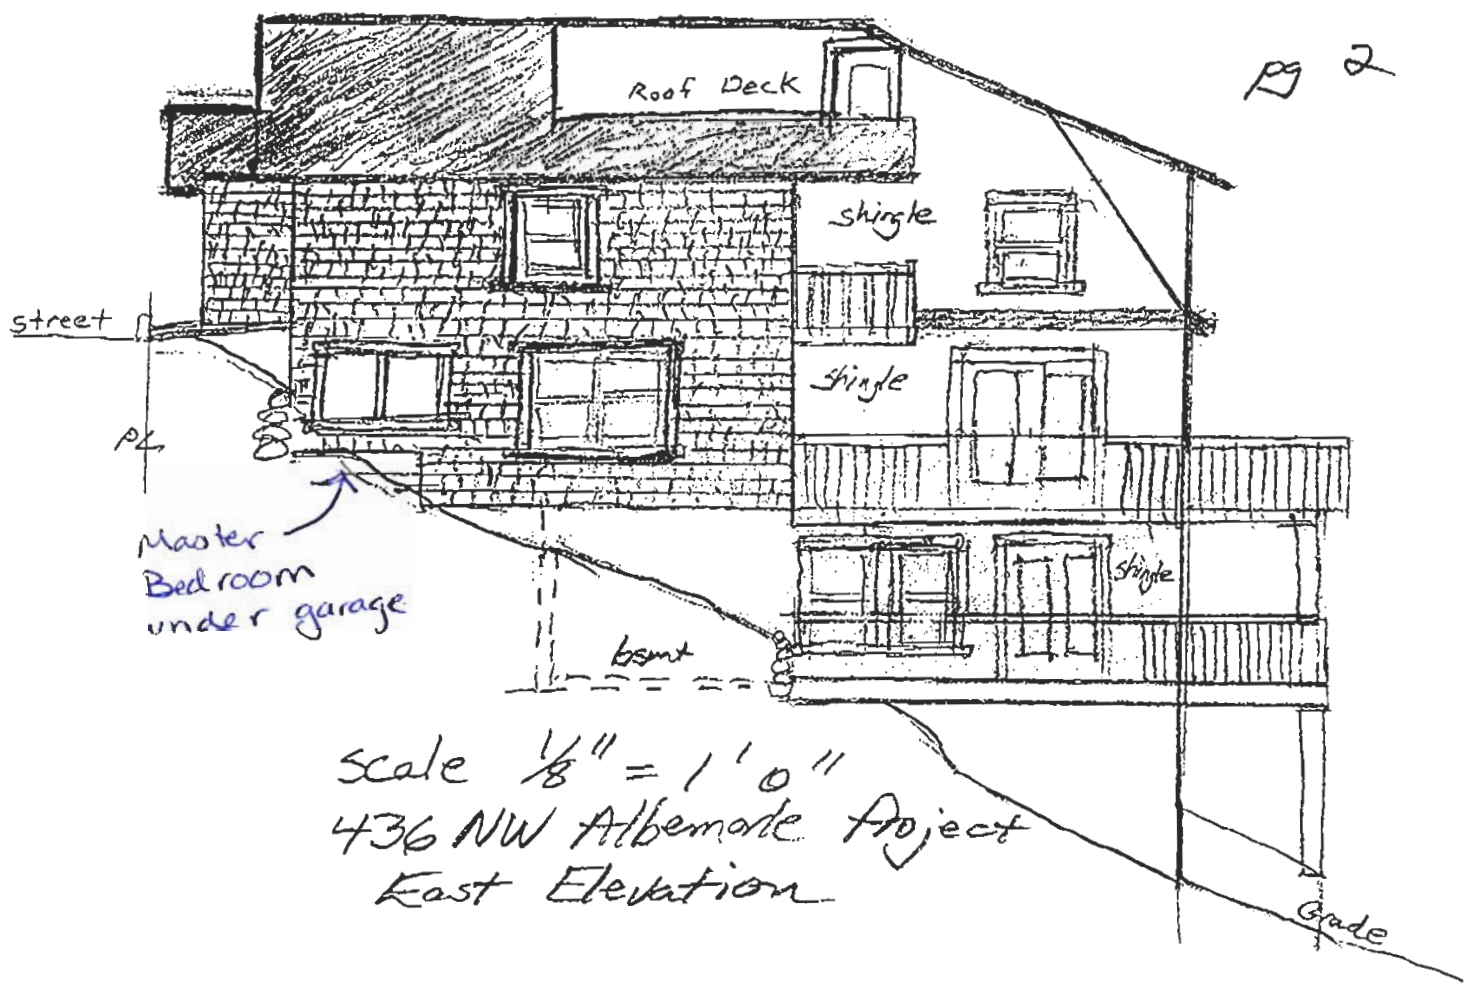 pg 2
Roof Deck
shingle
street
shingle
PL
Master
Bedroom
under garage
shingle
bsmt
scale 1/8" = 1'0"
436 NW Albemarle Project
East Elevation
Grade